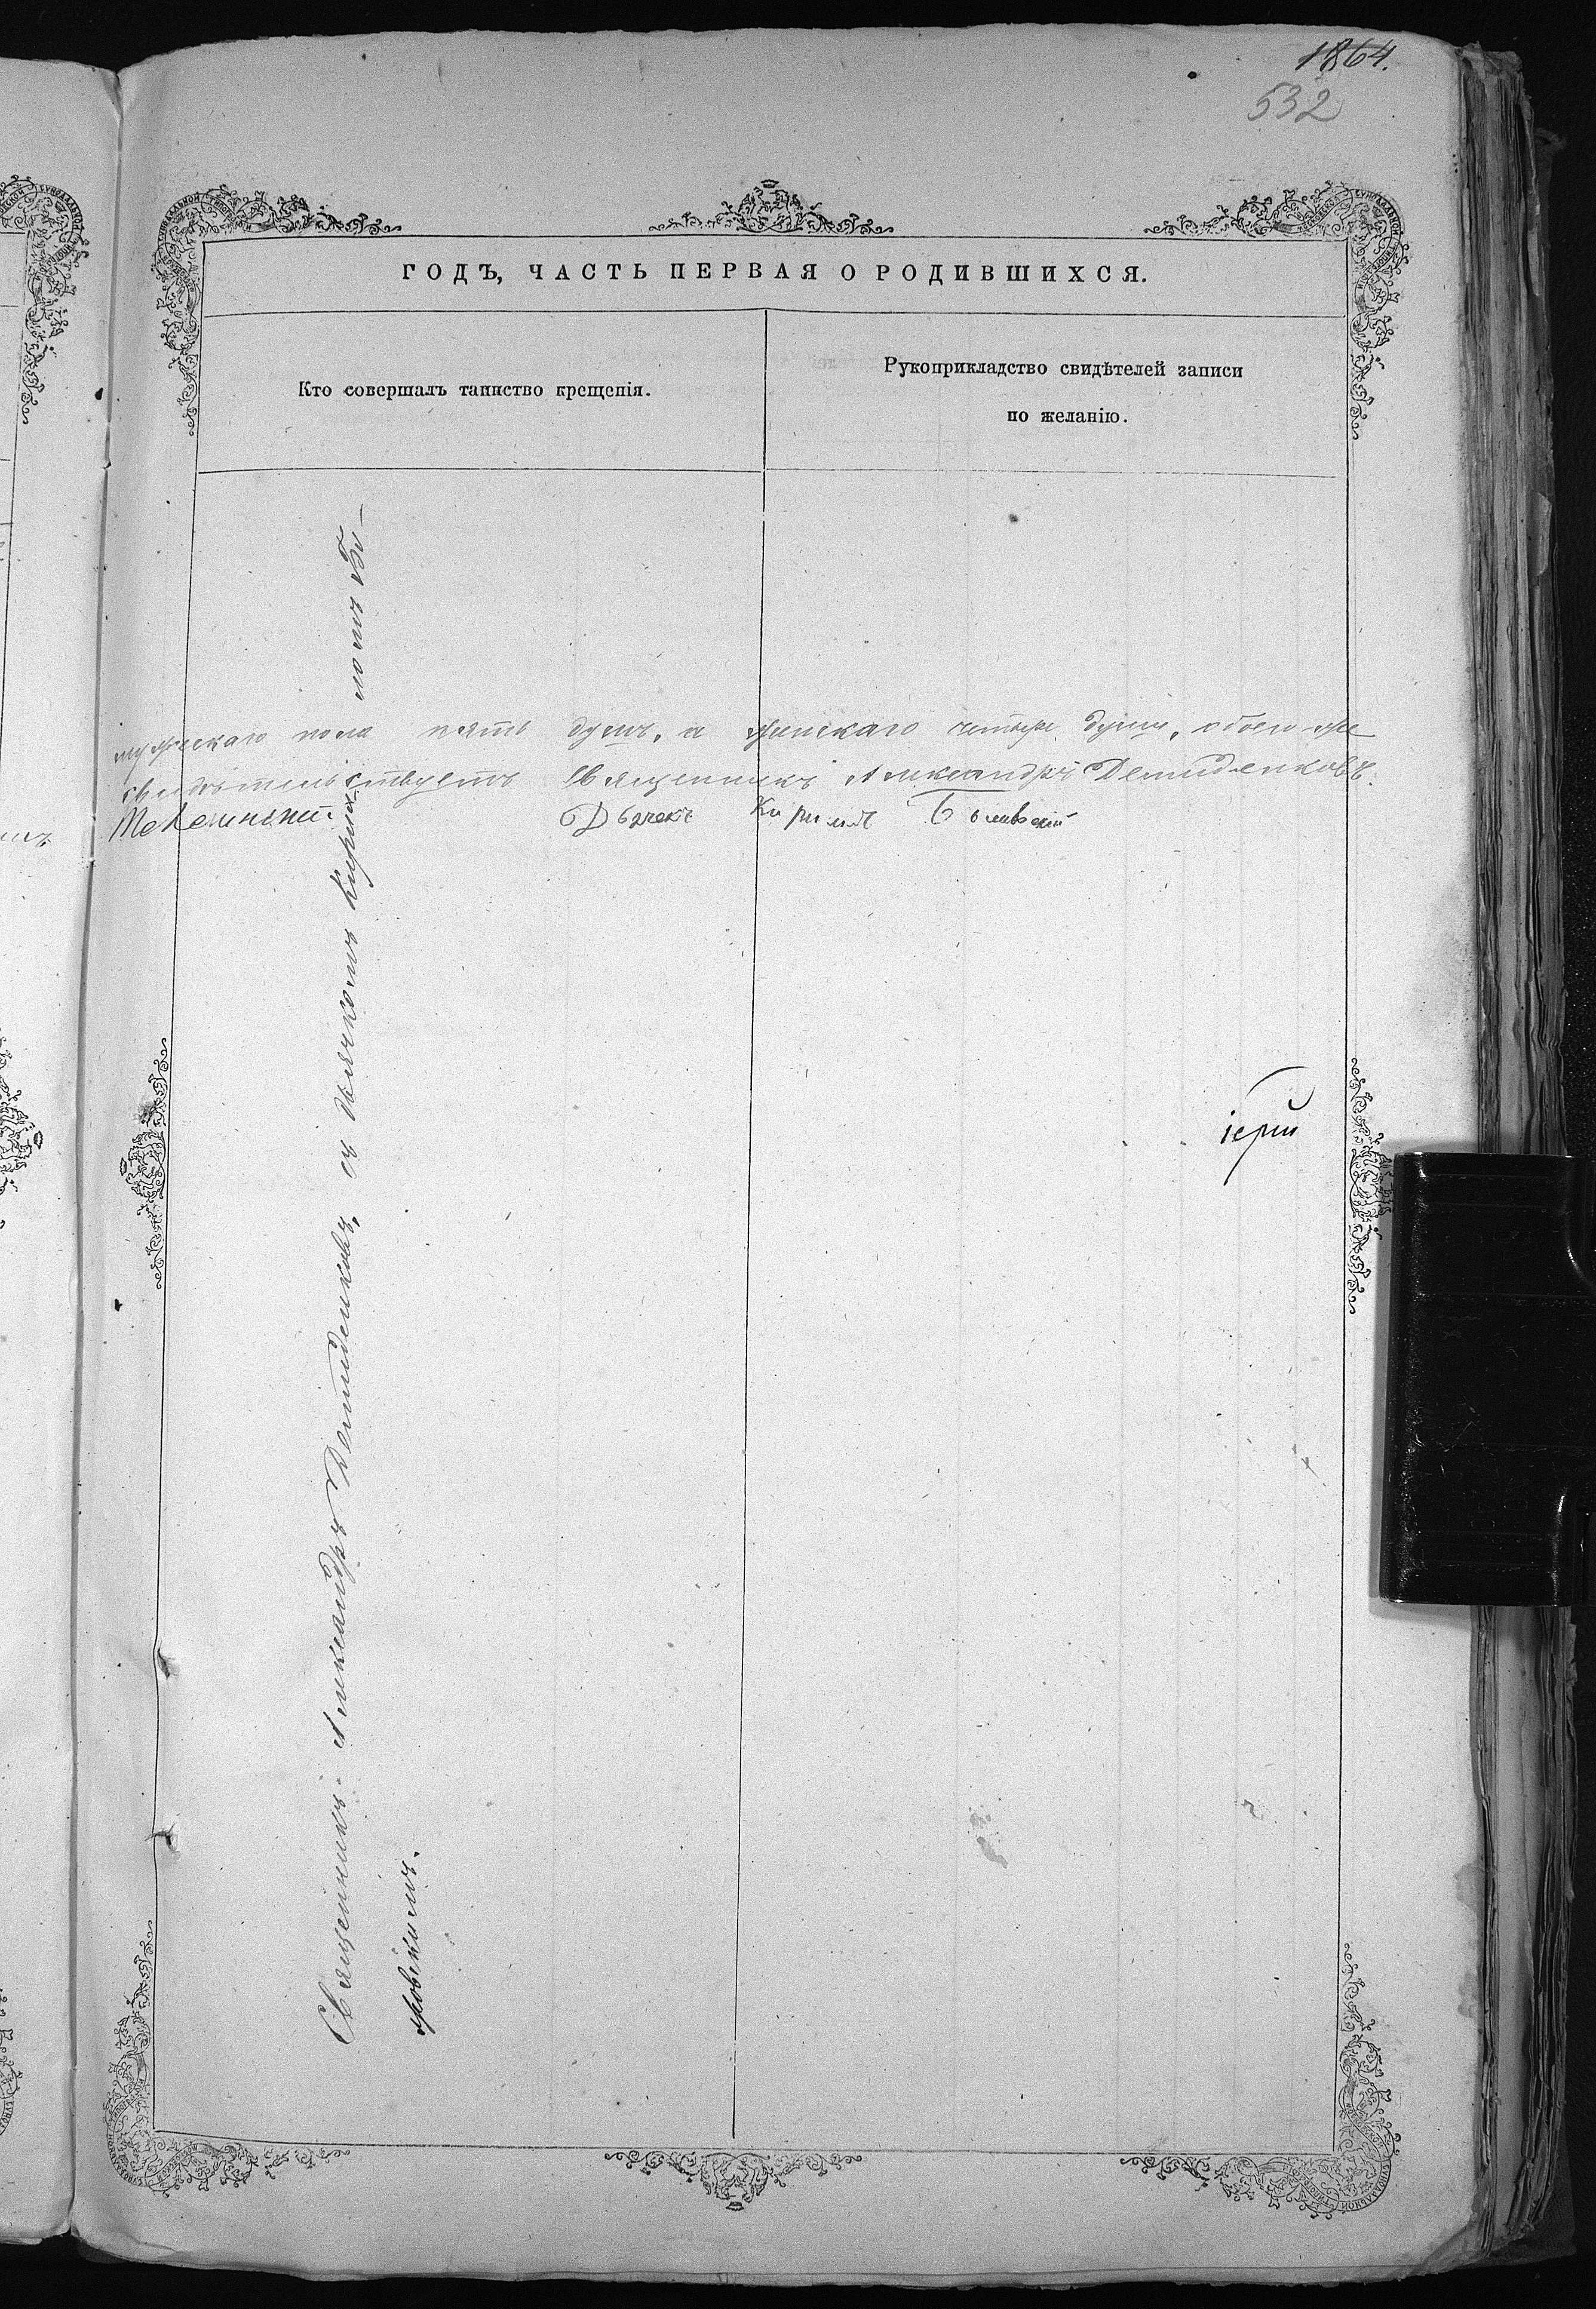 1864.
532
ГОДЪ, ЧАСТЬ ПЕРВАЯ О РОДИВШИХСЯ.
Кто совершалъ таинство крещенія.
Рукоприкладство свидѣтелей записи
по желанію.
мужескаго пола пять душъ, а женскаго четыре души, обоего же
свидѣтельствуетъ Священникъ Александръ Демиденковъ.
Дьячекъ Кирилъ
іерей
Священникъ Александръ Демиденковъ, съ дьячкомъ Кирил-
ломъ Бо-
ровскимъ.